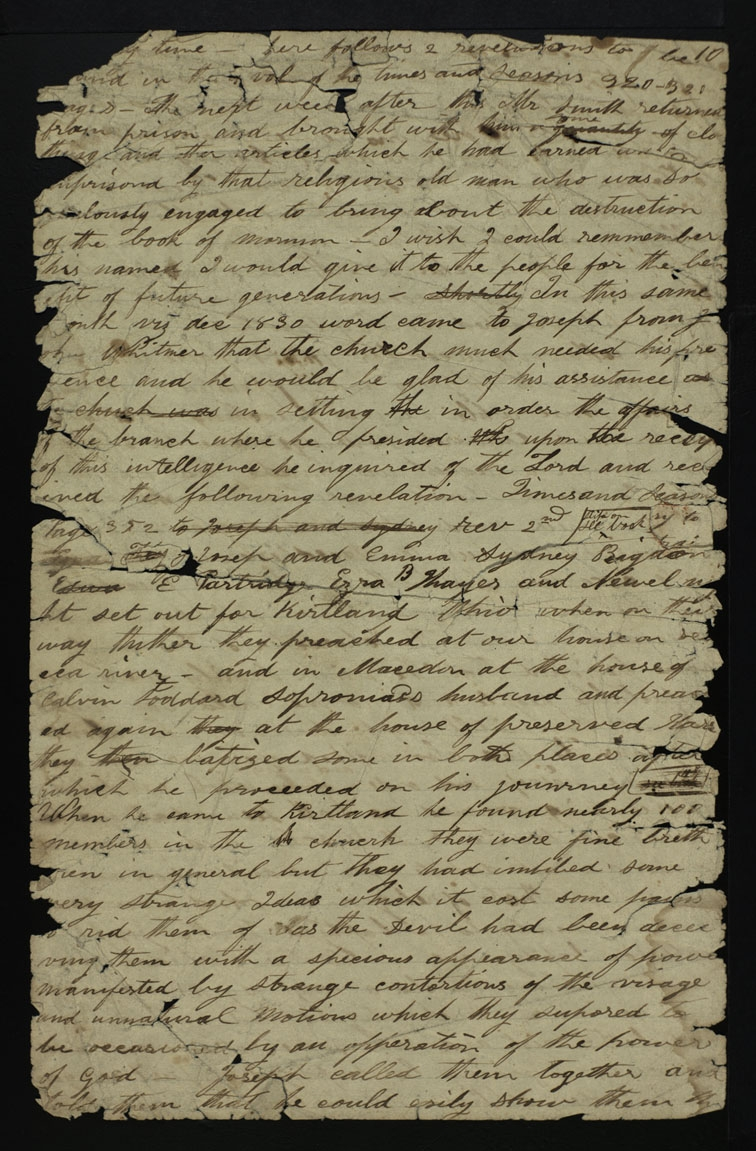 y time — here follows 2 revelations to be 10
und in the vol of the times and seasons 320-321
ages — The next week after this Mr Smith returned
from prison and brought with him a quantity some of clo
thing and other articles which he had earned
mprisond by that religious old man who was so
alously engaged to bring about the destruction
of the book of mormon — I wish I could remmember
his named I would give it to the people for the ben
efit of future generations — shortly In this same
onth viz dec 1830 word came to Joseph from J
ohn Whitmer that the church much needed his pre
sence and he would be glad of his assistance as
chuch was in setting the in order the affairs
of the branch where he presided upon the recep
of this intelligence he inquired of the Lord and rec
eived the following revelation — Times and Seasons
page 352 to Joseph and Sydney rev 2nd see book
Joseph and Emma Sydney Rigdon
Edwa E Partridge Ezra B Thayer and Newel
ht set out for Kirtland Ohio when on their
way thither they preached at our house on se
eca river — and in Macedon at the house of
Calvin Stoddard Sopronias husband and preac
ed again they at the house of preserved Harr
they then baptized some in both places after
which he proceeded on his journrney
When he came to Kirtland he found nearly 100
members in the chuerh they were fine breth
ren in general but they had imbibed some
very strange Ideas which it cost some pains
to rid them of as the Devil had been decei
ving them with a specious appearance of powe
manifested by strange contortions of the visage
and unnatural motions which they suposed to
be occasioned by an opperation of the power
of God — Joseph called them together and
told them that he could esily show them the